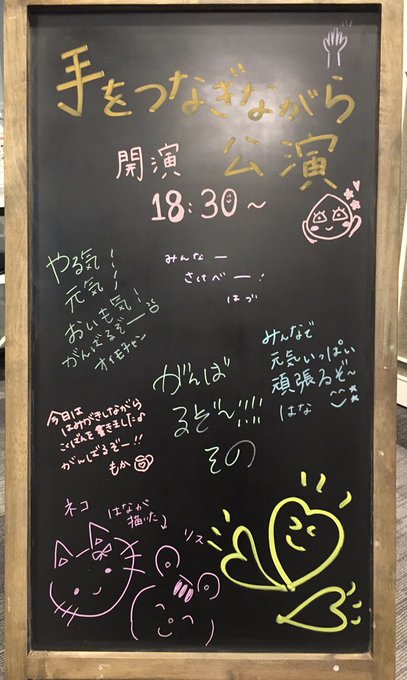 手をつなぎながら
公演
開演
18:30～
やる気!
元気!
おいも気!
がんばるぞー
オイモチャン
みんなー
さけべー!
はづ
みんなで
元気いっぱい
頑張るぞ～
はな
がんば
るぞ～!!!!
その
今日は
はみがきしながら
こくばんを書きました♪
がんばるぞー!!
もか
ネコ
はなが
描いた
リス